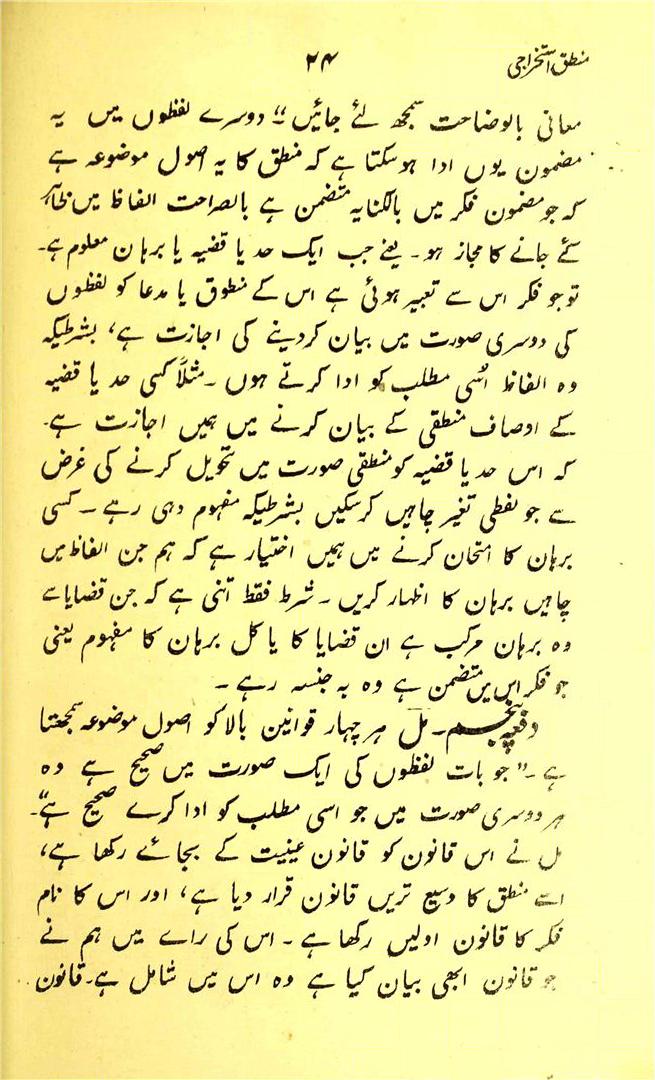 منطق استخراجی
۲۴
معانی بالوضاحت سمجھ لئے جائیں" دوسرے لفظوں میں یہ
مضمون یوں ادا ہوسکتا ہے کہ منطق کا یہ اصول موضوعہ ہے
کہ جو مضمون فکر میں بالکنایہ متضمن ہے بالصراحت الفاظ میں ظاہر
کئے جانے کا مجاز ہو۔ یعنے جب ایک حد یا قضیہ یا برہان معلوم ہے۔
تو جو فکر اس سے تعبیر ہوئی ہے اس کے منطوق یا مدعا کو لفظوں
کی دوسری صورت میں بیان کردینے کی اجازت ہے، بشرطیکہ
وہ الفاظ اسی مطلب کو ادا کرتے ہوں۔ مثلاً کسی حد یا قضیہ
کے اوصاف منطقی کے بیان کرنے میں ہمیں اجازت ہے۔
کہ اس حد یا قضیہ کو منطقی صورت میں تحویل کرنے کی غرض
سے جو لفظی تغیر چاہیں کرسکیں بشرطیکہ مفہوم وہی رہے۔ کسی
برہان کا امتحان کرنے میں ہمیں اختیار ہے کہ ہم جن الفاظ میں
چاہیں برہان کا اظہار کریں۔ شرط فقط اتنی ہے کہ جن قضایا سے
وہ برہان مرکب ہے ان قضایا کا یا کل برہان کا مفہوم یعنی
جو فکر اس میں متضمن ہے وہ بہ جنسہ رہے۔
دفعہ پنجم۔ مل ہر چہار قوانین بالا کو اصول موضوعہ سمجھتا
ہے۔ "جو بات لفظوں کی ایک صورت میں صحیح ہے وہ
ہر دوسری صورت میں جو اسی مطلب کو ادا کرے صحیح ہے"۔
مل نے اس قانون کو قانون عینیت کے بجائے رکھا ہے،
اسے منطق کا وسیع تریں قانون قرار دیا ہے، اور اس کا نام
فکر کا قانون اولیں رکھا ہے۔ اس کی رائے میں ہم نے
جو قانون ابھی بیان کیا ہے وہ اس میں شامل ہے۔ قانون